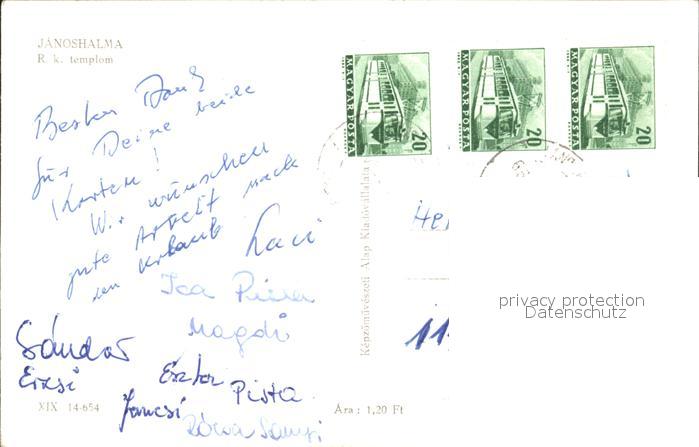 JÁNOSHALMA
R. k. templom
Besten Dank
für Deine beide
Karten!
Wir wünschen
gute Arbeit nach
den Urlaub
Laci
Ica Piri
Magdi
Sándor
Erzsi
Eszter
Pista
Jancsi
XIX 14-654
Ára: 1,20 Ft
Képzőművészeti Alap Kiadóvállalata
MAGYAR POSTA
20
MAGYAR POSTA
20
MAGYAR POSTA
20
Her
11
privacy protection
Datenschutz